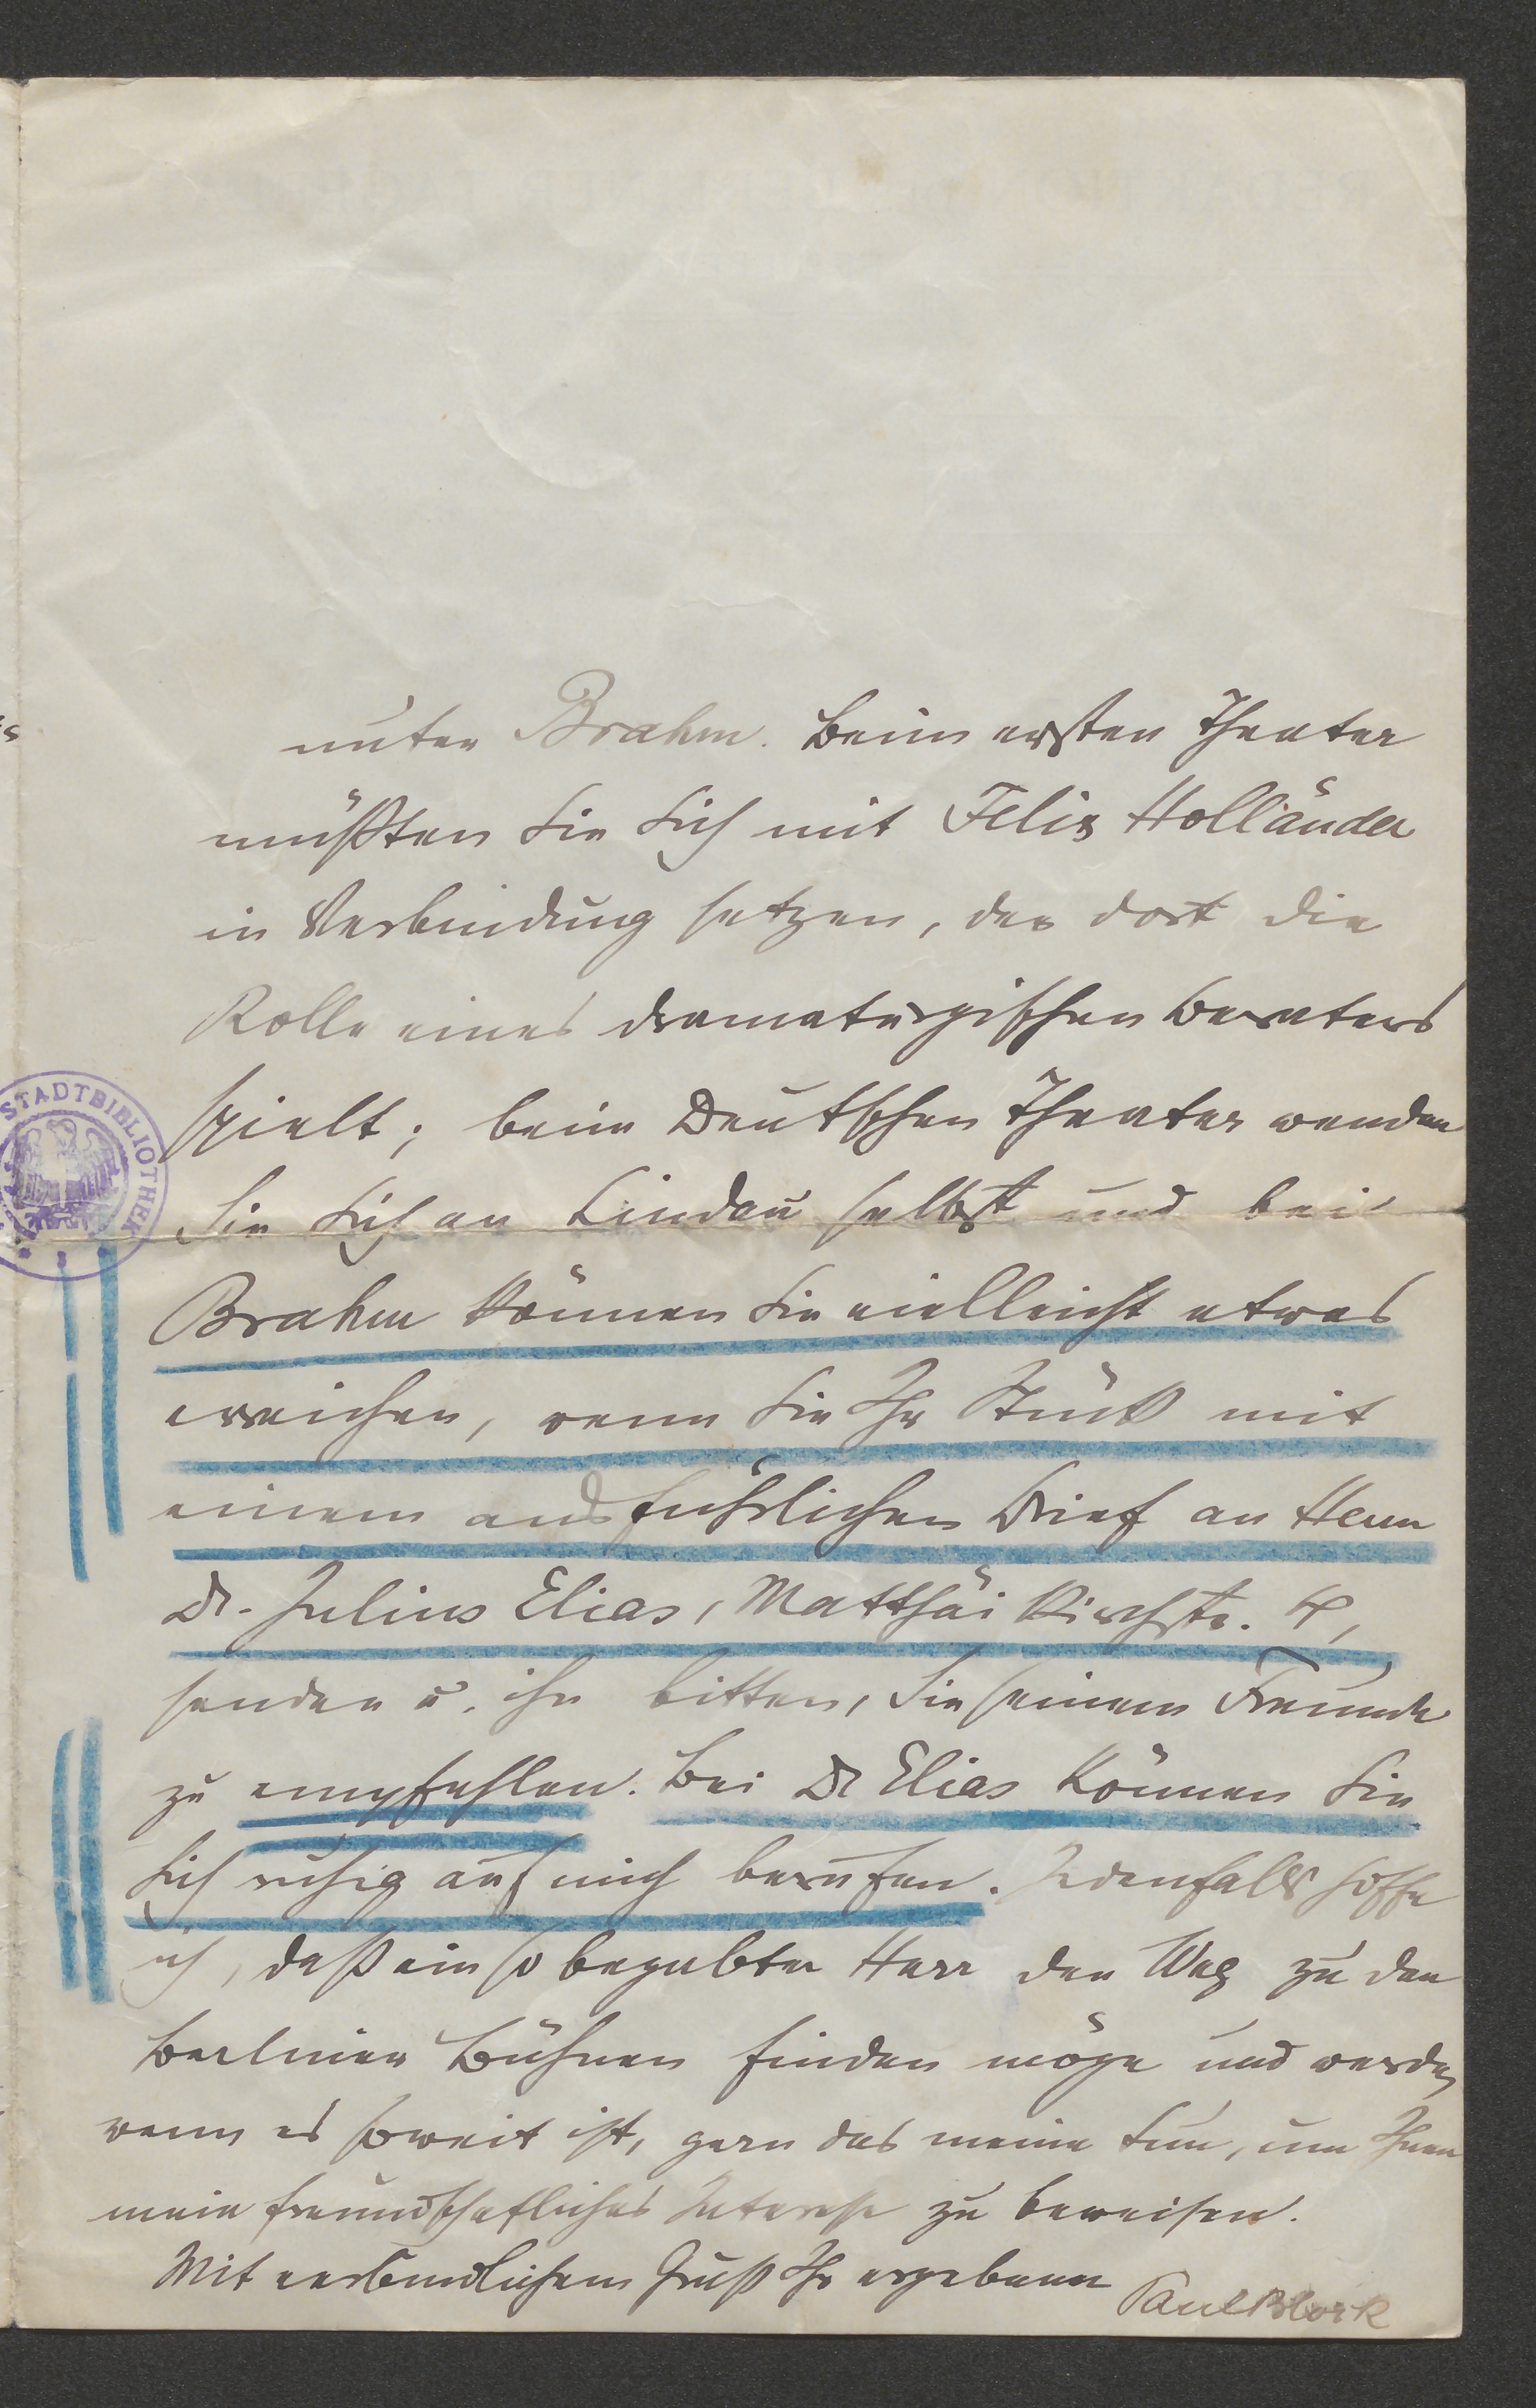 unter Brahm. Beim ersten Theater
müßten Sie Sich mit Felix Holländer
in Verbindung setzen, der dort die
Rolle eines dramaturgischen Beraters
spielt; beim Deutschen Theater wenden
STADTBIBLIOTHEK
Sie Sich an Lindau selbst und bei
Brahm können Sie vielleicht etwas
erreichen, wenn Sie Ihr Stück mit
einem ausführlichen Brief an Herrn
Dr. Julius Elias, Matthäi Kirchstr. 4,
senden u. ihn bitten, Sie seinem Freunde
zu empfehlen. Bei Dr Elias können Sie
Sich ruhig auf mich berufen. Jedenfalls hoffe
ich, daß ein so begabter Herr den Weg zu den
Berliner Bühnen finden möge und werde,
wenn es soweit ist, gern das meine tun, um Ihnen
mein freundschaftliches Interesse zu beweisen.
Mit verbindlichem Gruß Ihr ergebener
Paul Block